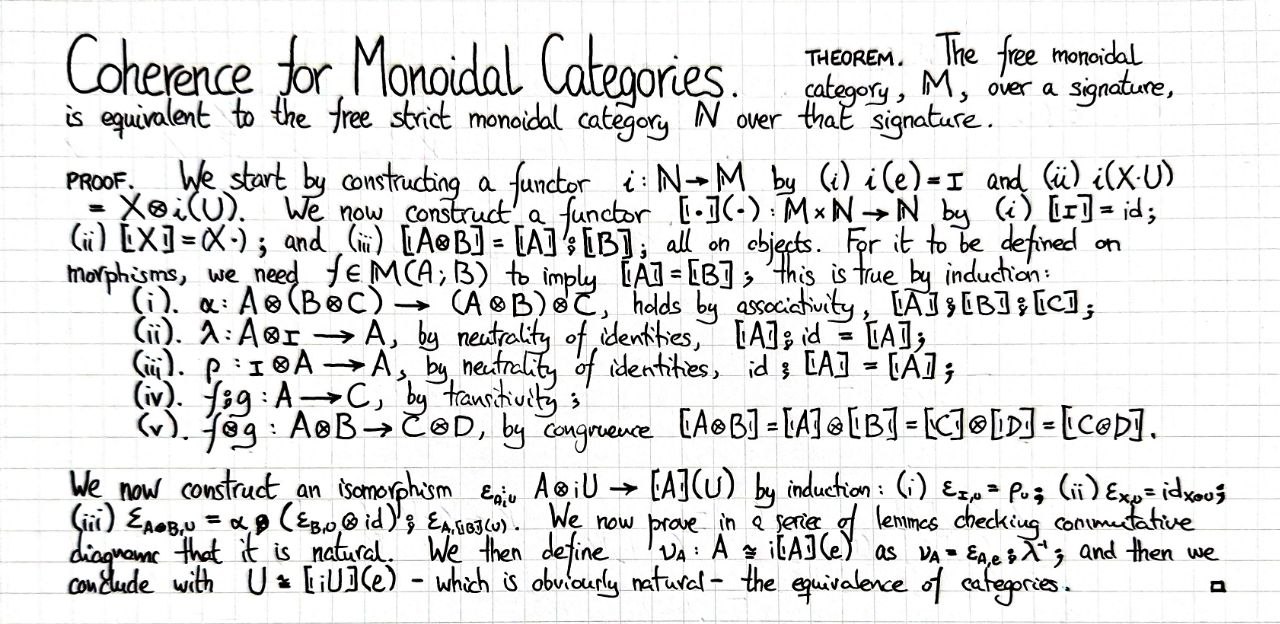 Coherence for Monoidal Categories. THEOREM. The free monoidal
category, M, over a signature,
is equivalent to the free strict monoidal category ℕ over that signature.
PROOF. We start by constructing a functor i : ℕ → M by (i) i(e) = I and (ii) i(X·U)
= X⊗i(U). We now construct a functor ⟦·⟧(·) : M × ℕ → ℕ by (i) ⟦I⟧ = id;
(ii) ⟦X⟧ = (X·); and (iii) ⟦A⊗B⟧ = ⟦A⟧⨾⟦B⟧; all on objects. For it to be defined on
morphisms, we need f ∈ M(A; B) to imply ⟦A⟧ = ⟦B⟧; this is true by induction:
(i). α : A⊗(B⊗C) → (A⊗B)⊗C, holds by associativity, ⟦A⟧⨾⟦B⟧⨾⟦C⟧;
(ii). λ : A⊗I → A, by neutrality of identities, ⟦A⟧⨾id = ⟦A⟧;
(iii). ρ : I⊗A → A, by neutrality of identities, id⨾⟦A⟧ = ⟦A⟧;
(iv). f⨾g : A → C, by transitivity;
(v). f⊗g : A⊗B → C⊗D, by congruence ⟦A⊗B⟧ = ⟦A⟧⊗⟦B⟧ = ⟦C⟧⊗⟦D⟧ = ⟦C⊗D⟧.
We now construct an isomorphism ε_{A,U} : A⊗iU → ⟦A⟧(U) by induction: (i) ε_{I,U} = ρ_U; (ii) ε_{X,U} = id_{X⊗U};
(iii) ε_{A⊗B,U} = α⨾(ε_{B,U}⊗id)⨾ε_{A,⟦B⟧(U)}. We now prove in a series of lemmas checking commutative
diagrams that it is natural. We then define ν_A : A ≅ i⟦A⟧(e) as ν_A = ε_{A,e}⨾λ⁻¹; and then we
conclude with U ≅ ⟦iU⟧(e) – which is obviously natural – the equivalence of categories. □